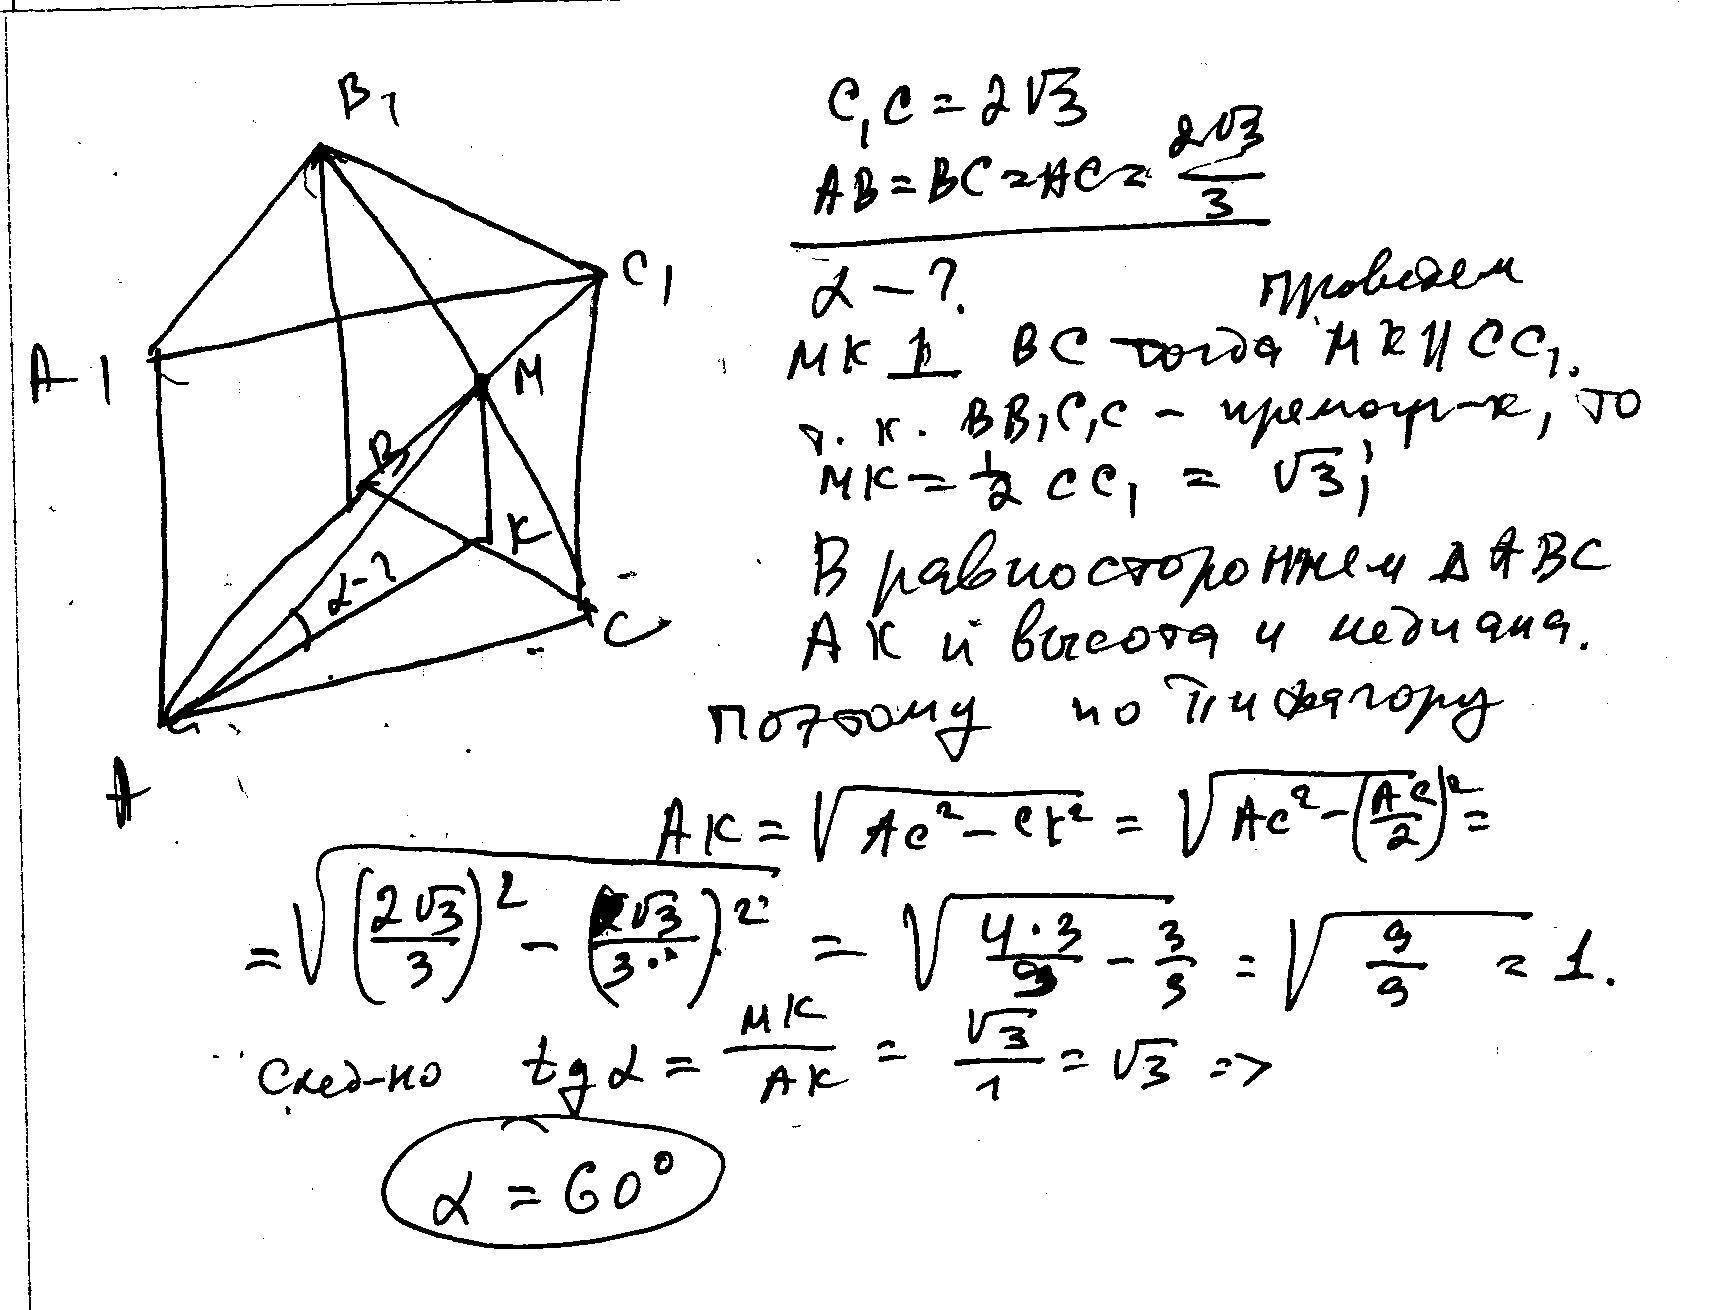 B1
C1
A1
M
B
K
α-?
C
A
C₁C = 2√3
AB = BC = AC = 2√3/3
α - ?.
проведем
MK ⊥ BC тогда MK || CC₁.
т. к. BB₁C₁C - прямоуг-к, то
MK = 1/2 CC₁ = √3;
В равностороннем Δ ABC
AK и высота и медиана.
Поэтому по Пифагору
AK = √(AC² - CK²) = √(AC² - (AC/2)²) =
= √((2√3/3)² - (2√3/(3·2))²) = √(4·3/9 - 3/9) = √(9/9) = 1.
След-но tg α = MK/AK = √3/1 = √3 =>
α = 60°